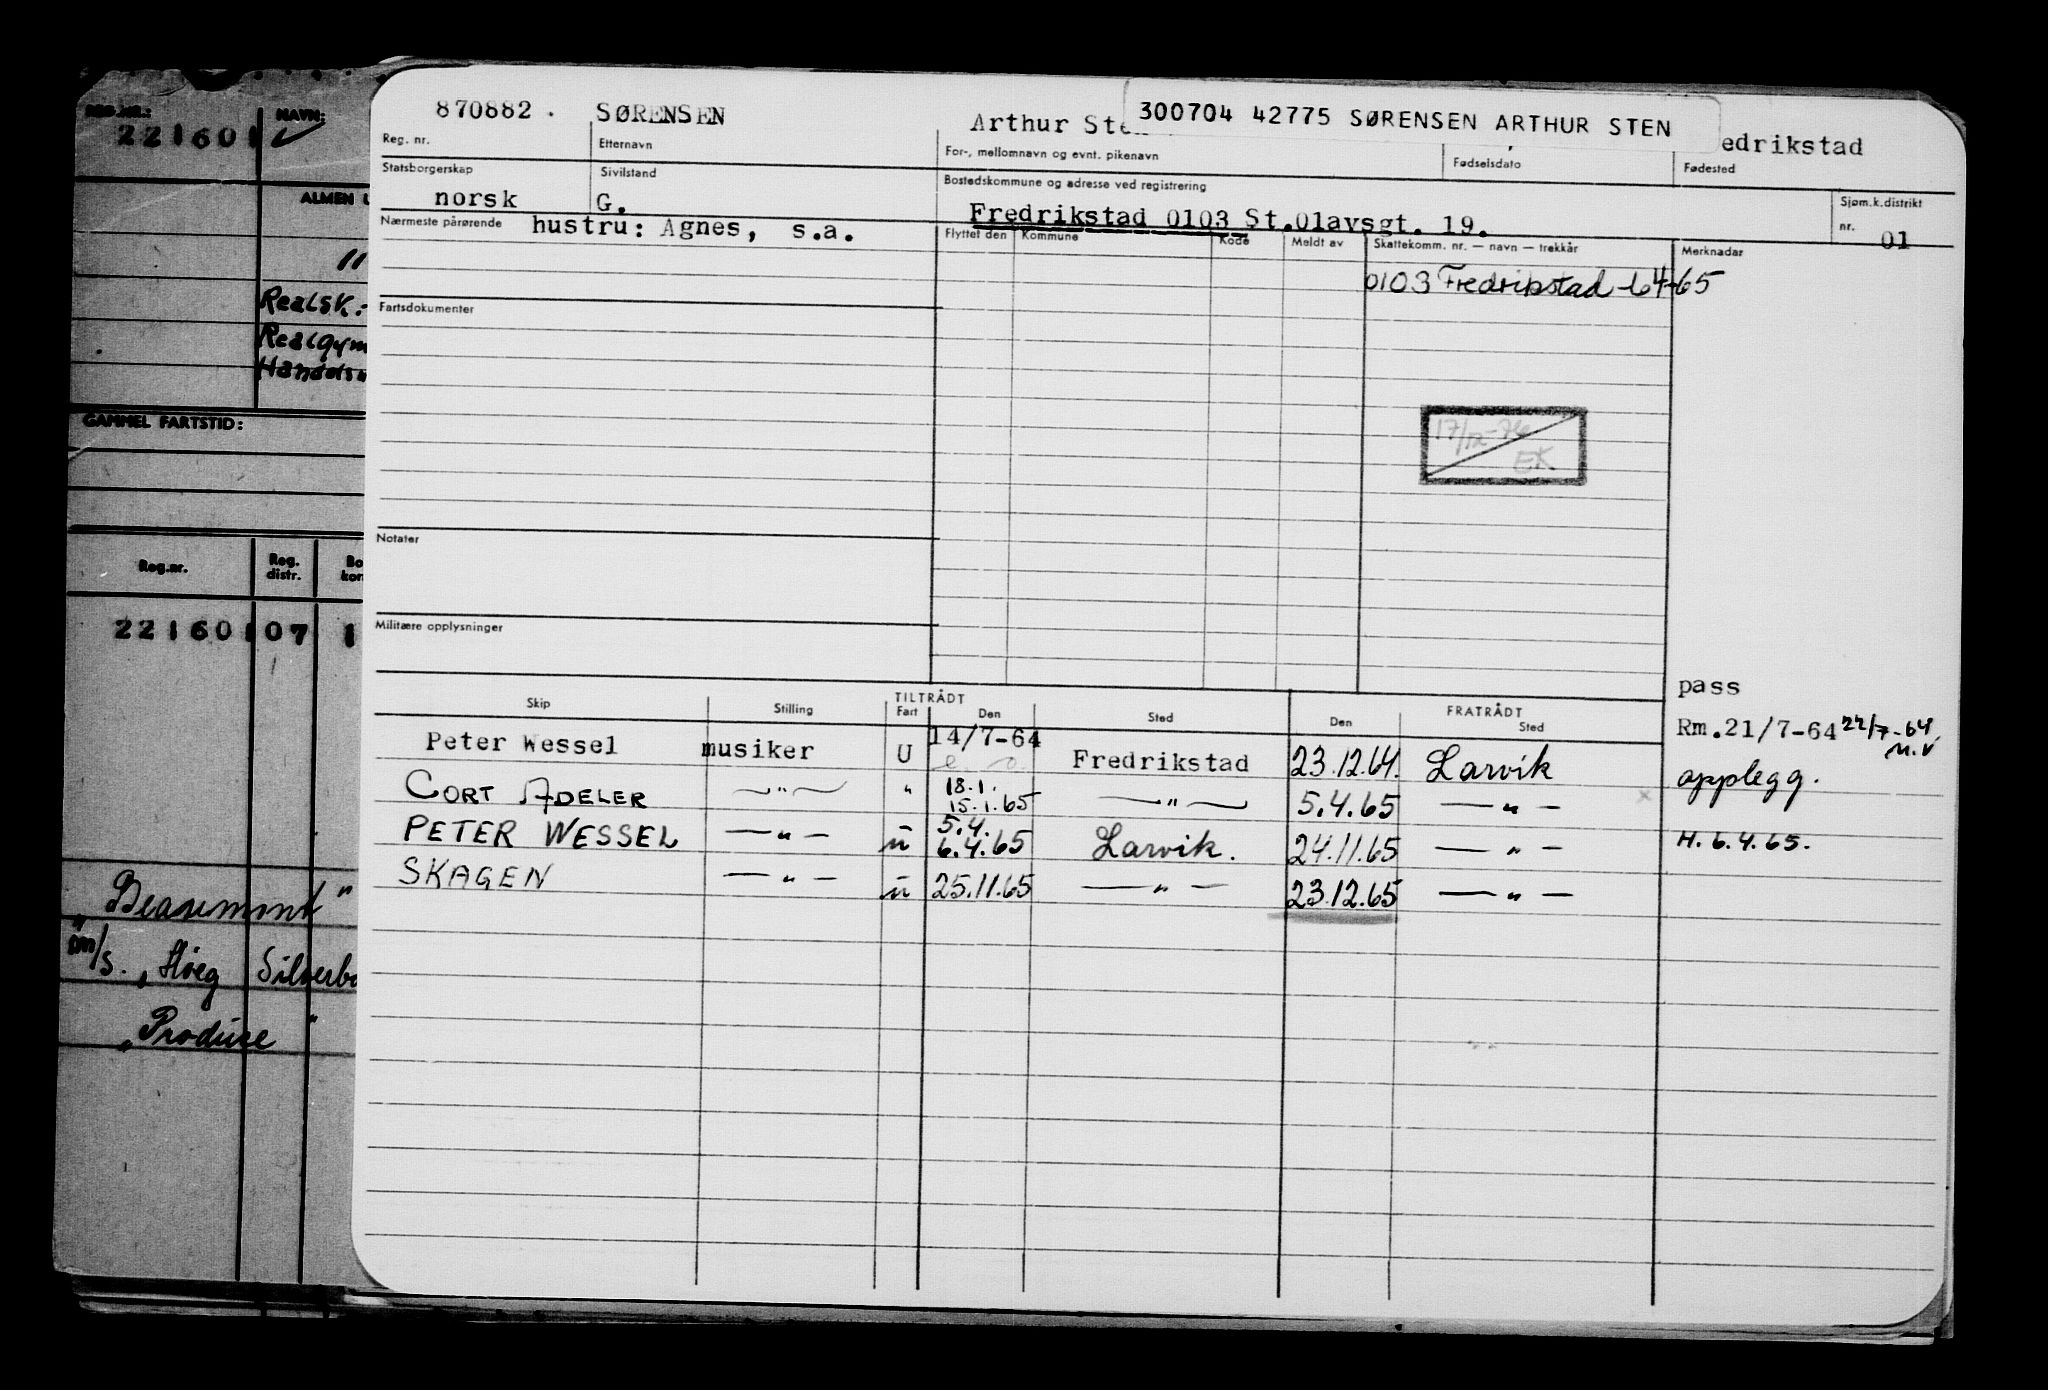 REG.NR.: NAVN:
221601
ALMEN
"
Realsk.-
Realgym
Handels
GAMMEL FARTSTID:
Reg.nr. Reg. distr. Bo kon
221601 07 1
"Beaumont"
m/s. "Høeg Silverb
"Produce"
870882. SØRENSEN Arthur Sten 300704 42775 SØRENSEN ARTHUR STEN edrikstad
Reg. nr. Etternavn For-, mellomnavn og evnt. pikenavn Fødselsdato Fødested
Statsborgerskap Sivilstand Bostedskommune og adresse ved registrering Sjøm.k.distrikt nr.
norsk G. Fredrikstad 0103 St.Olavsgt. 19. 01
Nærmeste pårørende hustru: Agnes, s.a. Flyttet den Kommune Kode Meldt av Skattekomm. nr. — navn — trekkår Merknadar
0103 Fredrikstad -64-65
Fartsdokumenter
17/12-76
EK
Notater
Militære opplysninger
pass
Skip Stilling TILTRÅDT Fart Den Sted Den FRATRÅDT Sted
Peter Wessel musiker U 14/7-64 Fredrikstad 23.12.64. Larvik Rm.21/7-64 22/7-64 M.V
CORT ADELER —"— " 18.1. 15.1.65 —"— 5.4.65 —"— opplegg.
PETER WESSEL —"— u 5.4. 6.4.65 Larvik. 24.11.65 —"— H. 6.4.65.
SKAGEN —"— u 25.11.65 —"— 23.12.65 —"—